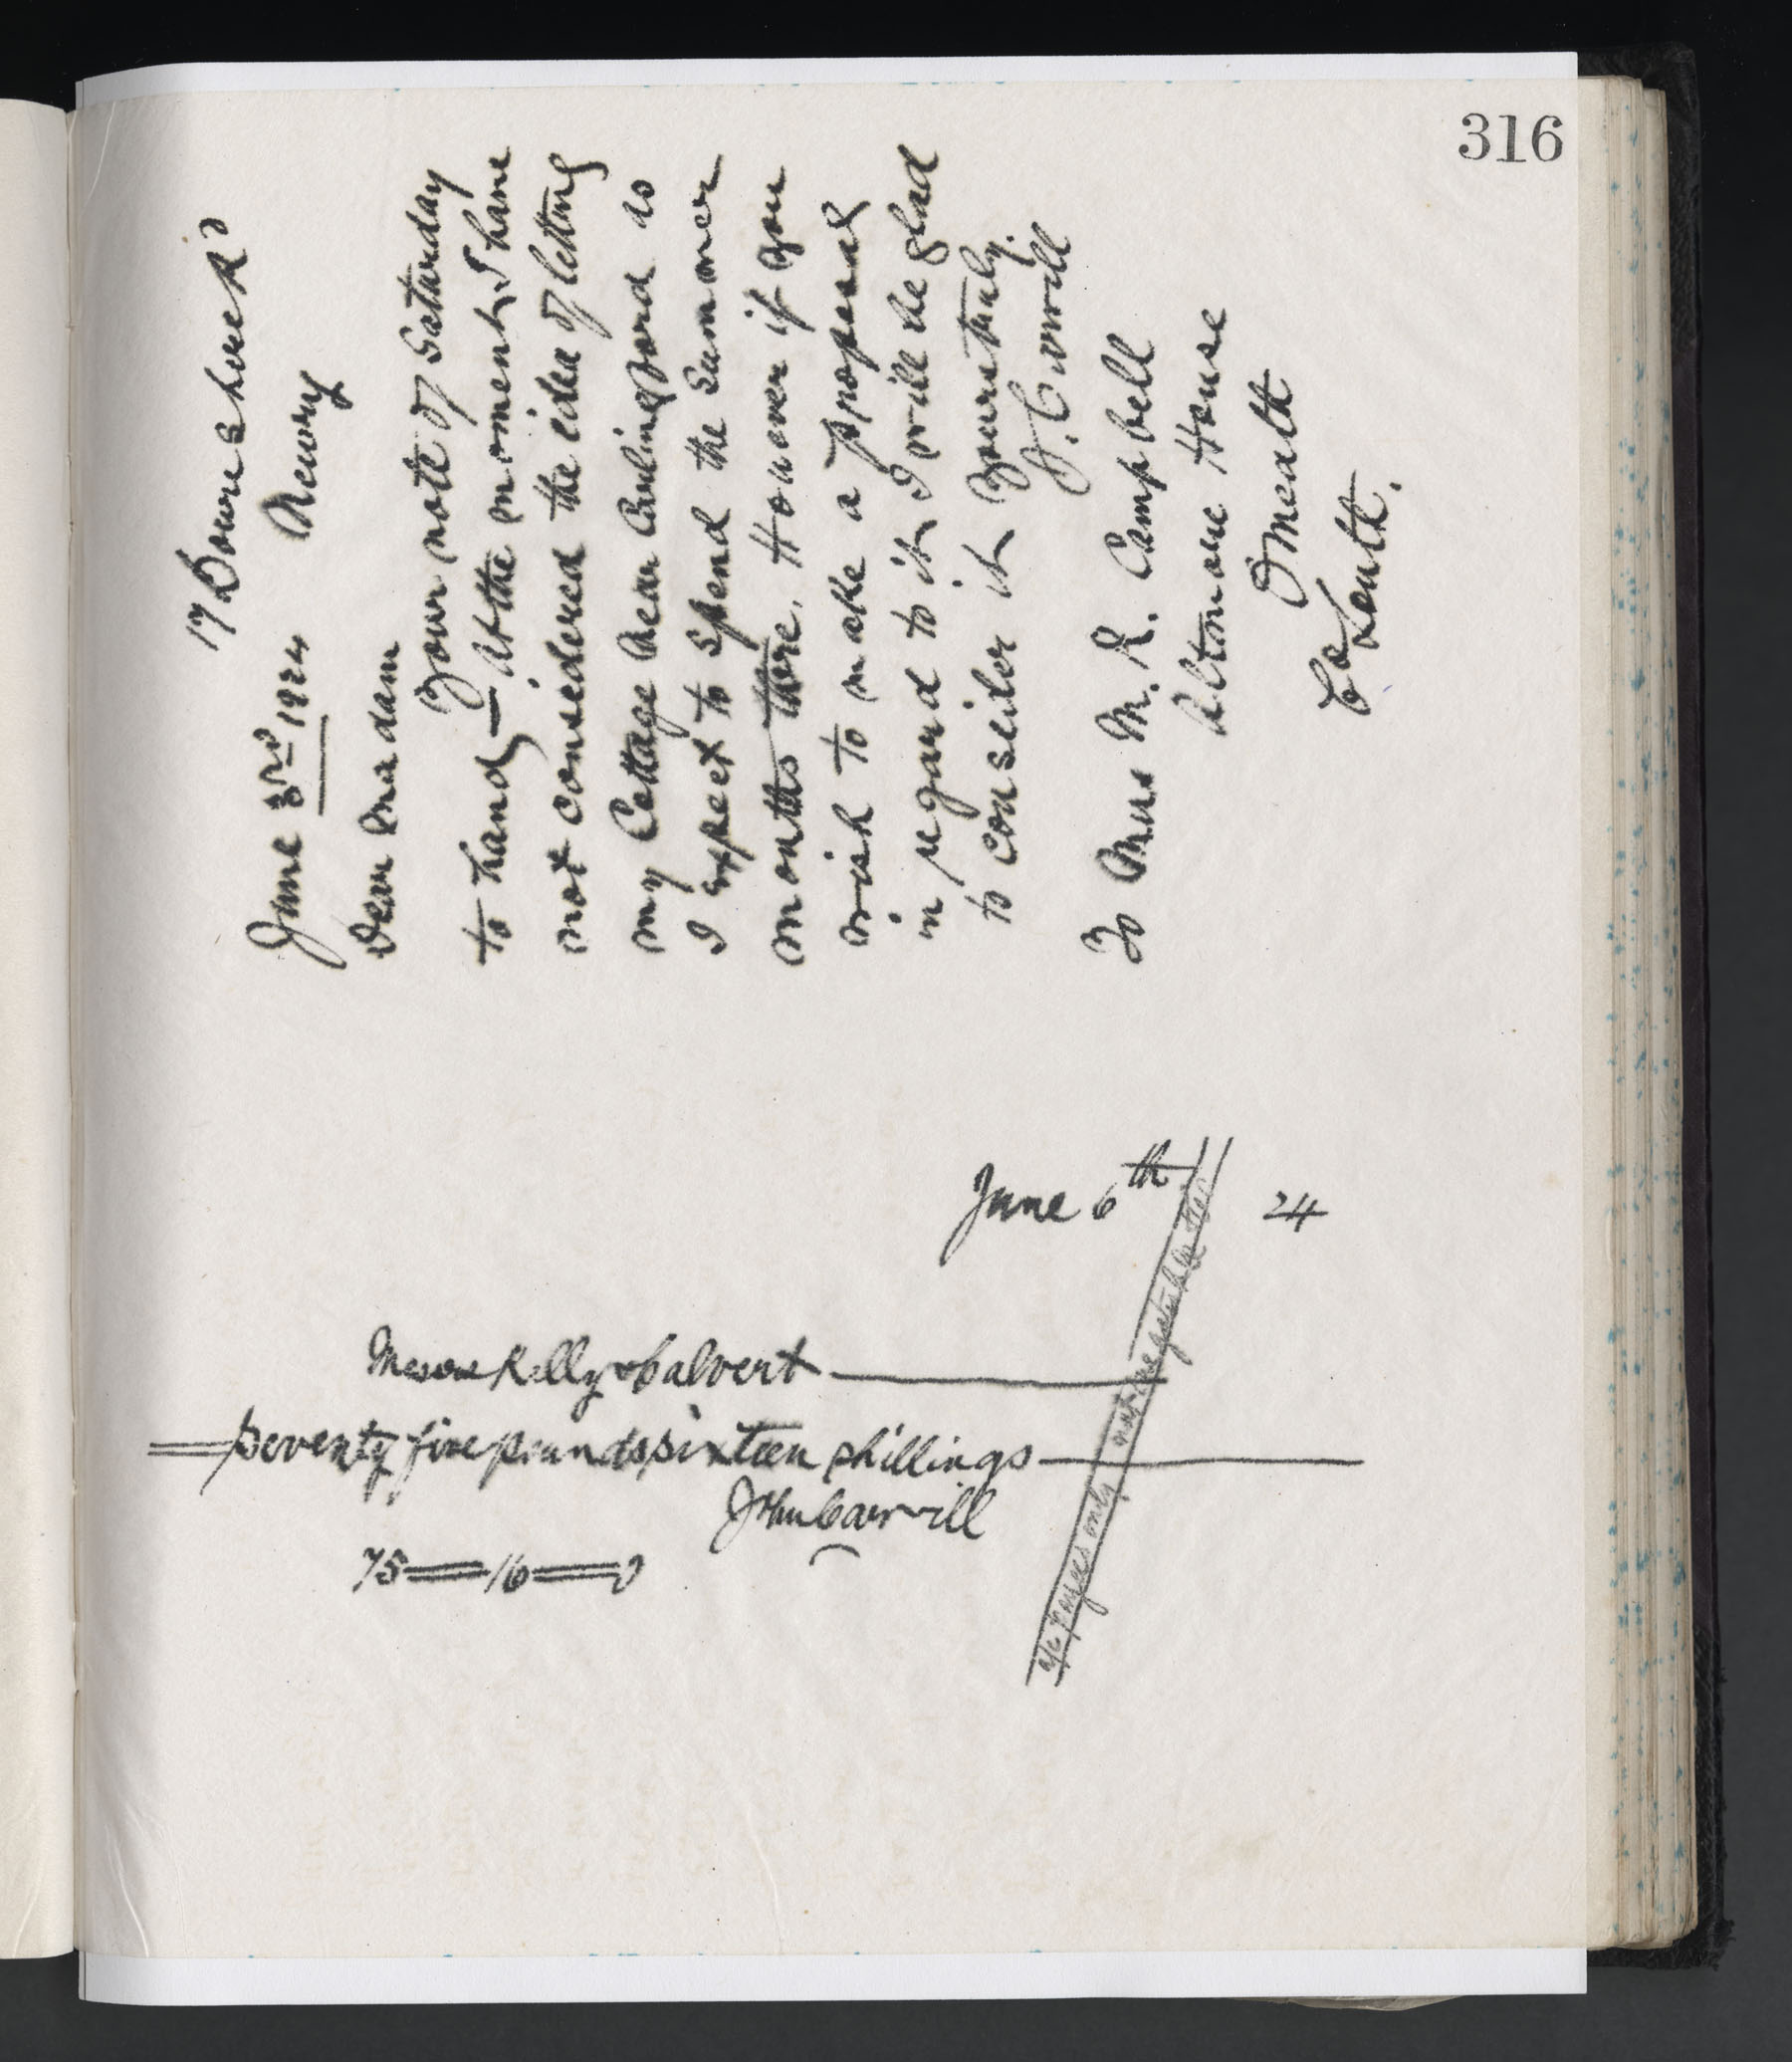 316
17 Downshire Rd
Newry
June 3rd 1924
Dear Madam
Your note of Saturday
to hand — At the moment I have
not considered the idea of letting
my Cottage near Carlingford as
I expect to spend the Summer
months there. However if you
wish to make a proposal
in regard to it I will be glad
to consider it Yours truly.
J. Carvill
To Miss M. R. Campbell
Altmore House
Omeath
Co Louth.
June 6th 24
Messrs Kelly & Calvert
Seventy five pounds sixteen shillings
John Carvill
75 = 16 = 0
a/c payee only not negotiable